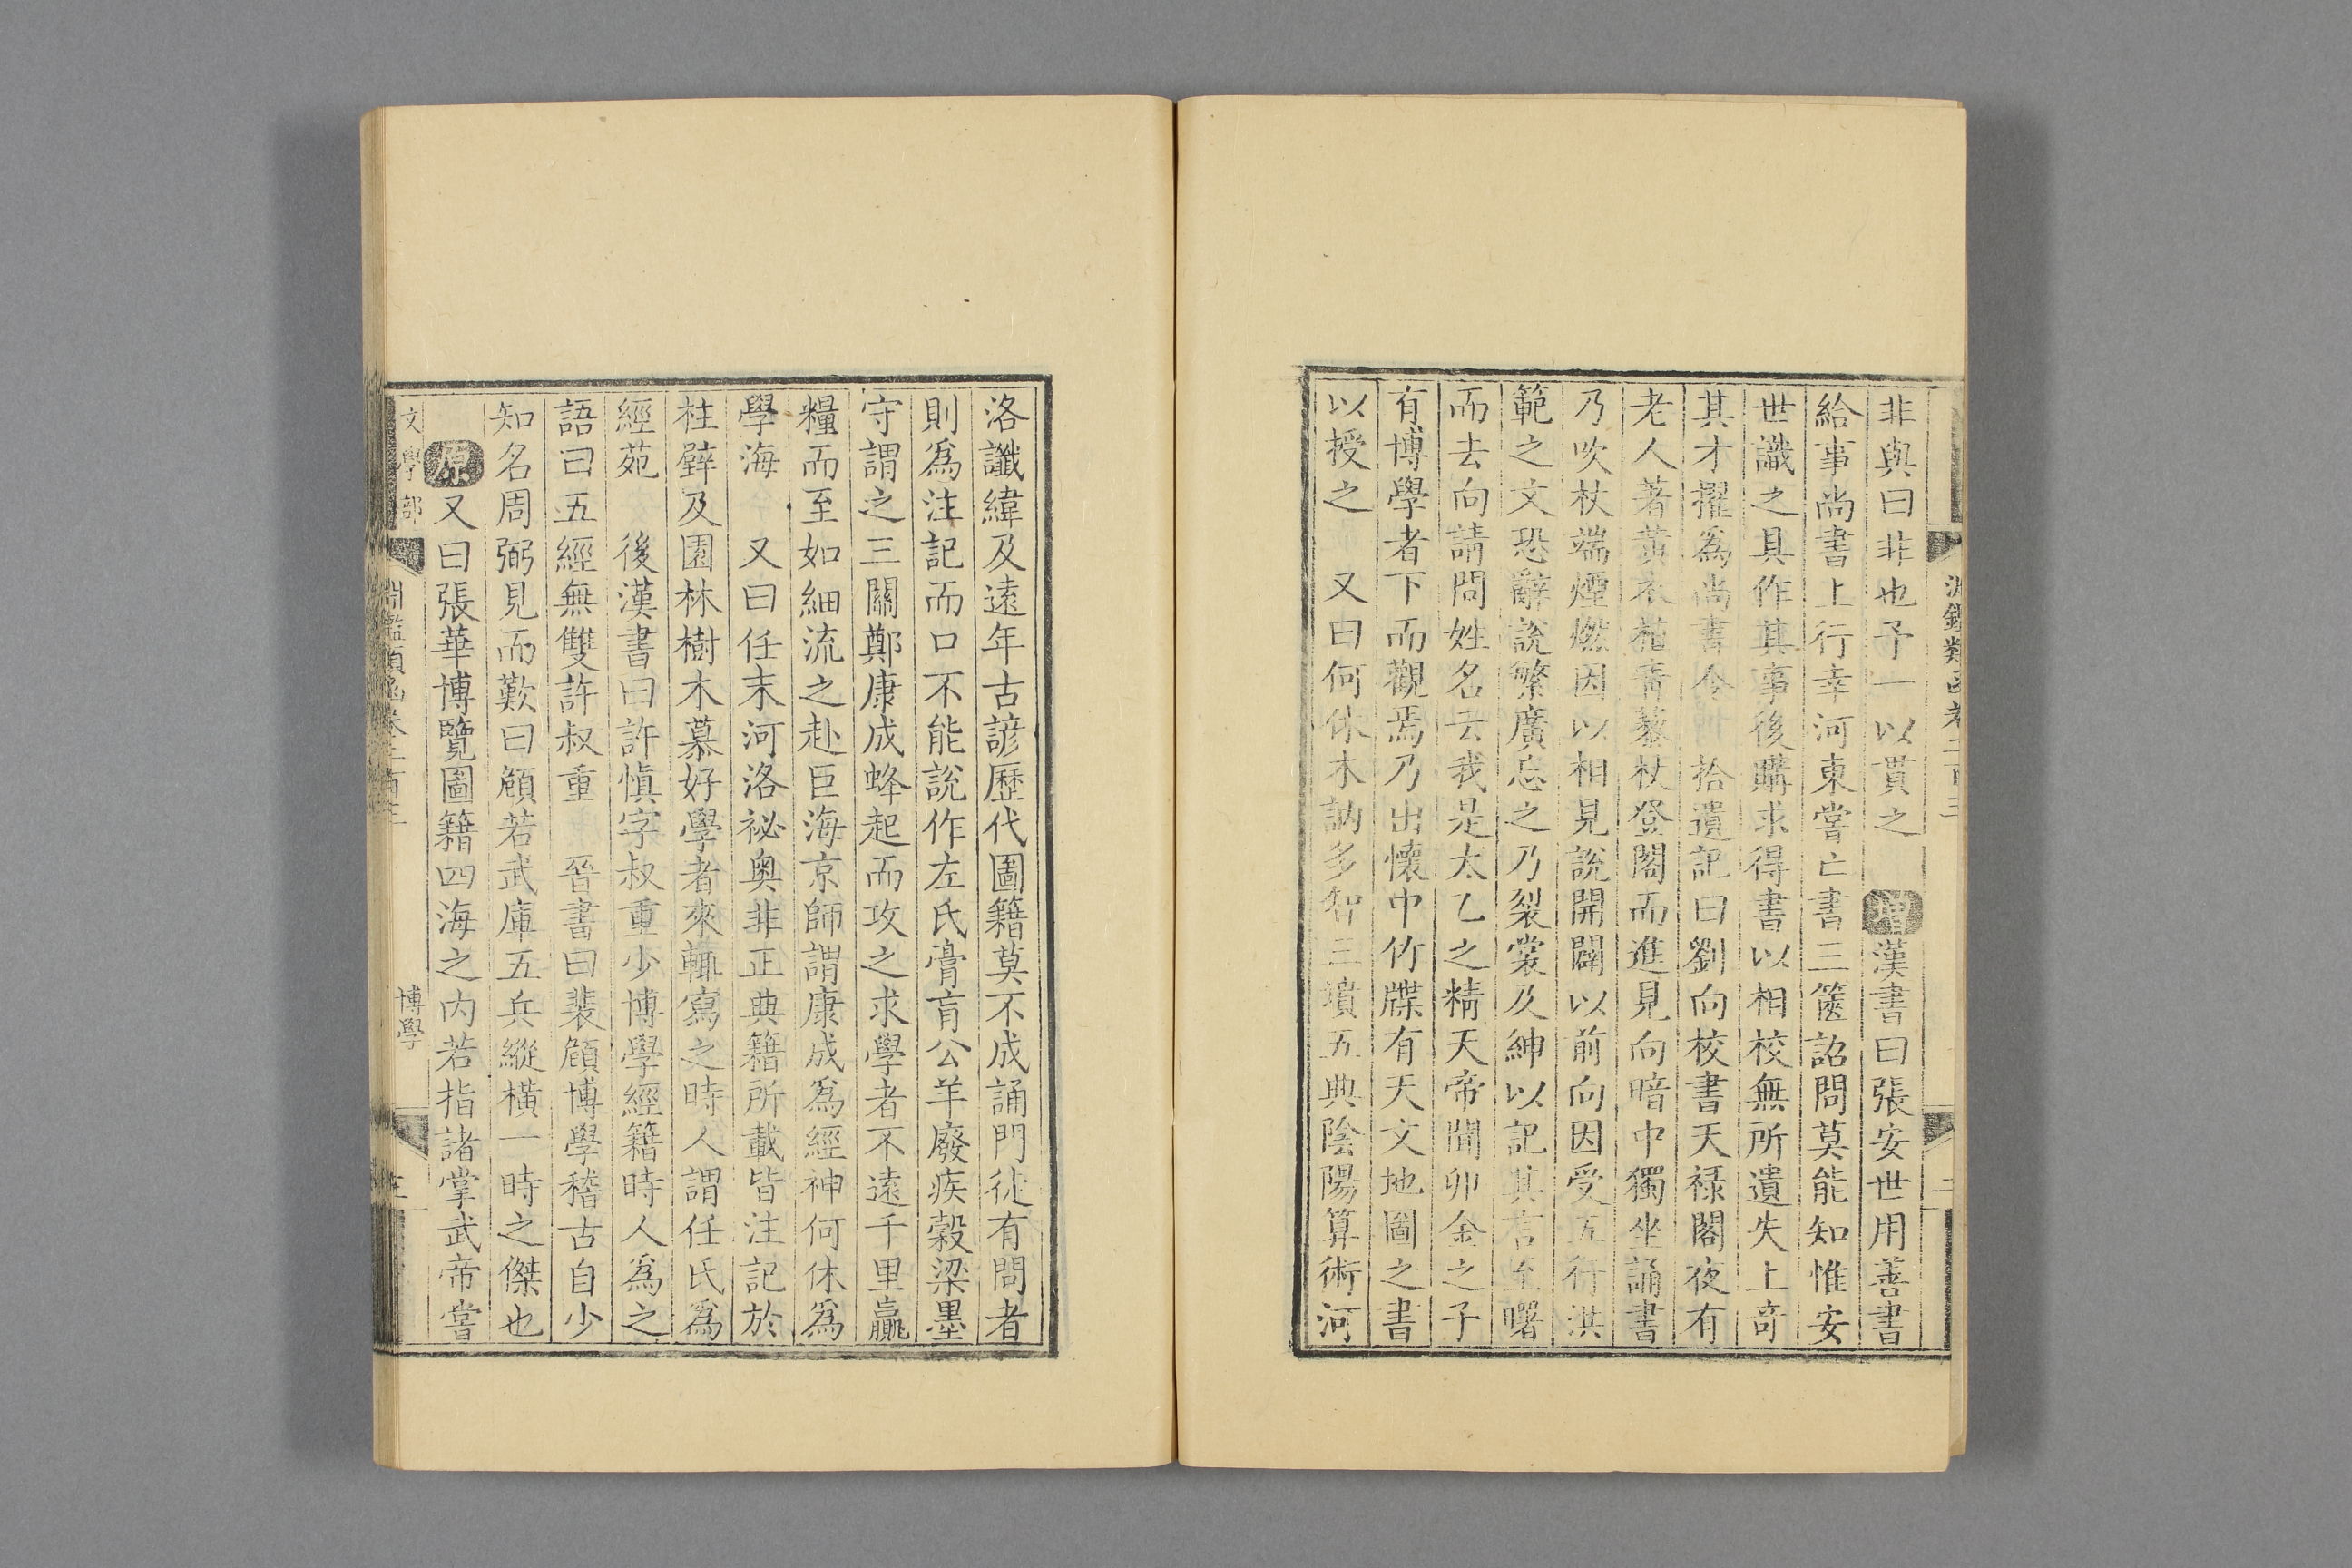 非與曰非也予一以貫之 增漢書曰張安世用善書
給事尚書上行幸河東嘗亡書三篋詔問莫能知惟安
世識之具作其事後購求得書以相校無所遺失上奇
其才擢為尚書令 拾遺記曰劉向校書天祿閣夜有
老人著黃衣植青藜杖登閣而進見向暗中獨坐誦書
乃吹杖端煙燃因以相見說開闢以前向因受五行洪
範之文恐辭說繁廣忘之乃裂裳及紳以記其言至曙
而去向請問姓名云我是太乙之精天帝聞卯金之子
有博學者下而觀焉乃出懷中竹牒有天文地圖之書
以授之 又曰何休木訥多智三墳五典陰陽算術河
洛讖緯及遠年古諺歷代圖籍莫不成誦門徒有問者
則為注記而口不能說作左氏膏肓公羊廢疾穀梁墨
守謂之三闕鄭康成蜂起而攻之求學者不遠千里贏
糧而至如細流之赴巨海京師謂康成為經神何休為
學海 又曰任末河洛祕奧非正典籍所載皆注記於
柱壁及園林樹木慕好學者來輒寫之時人謂任氏為
經苑 後漢書曰許慎字叔重少博學經籍時人為之
語曰五經無雙許叔重 晉書曰裴頠博學稽古自少
知名周弼見而歎曰頠若武庫五兵縱橫一時之傑也
原又曰張華博覽圖籍四海之內若指諸掌武帝嘗
文學部 淵鑑類函卷二百三 博學